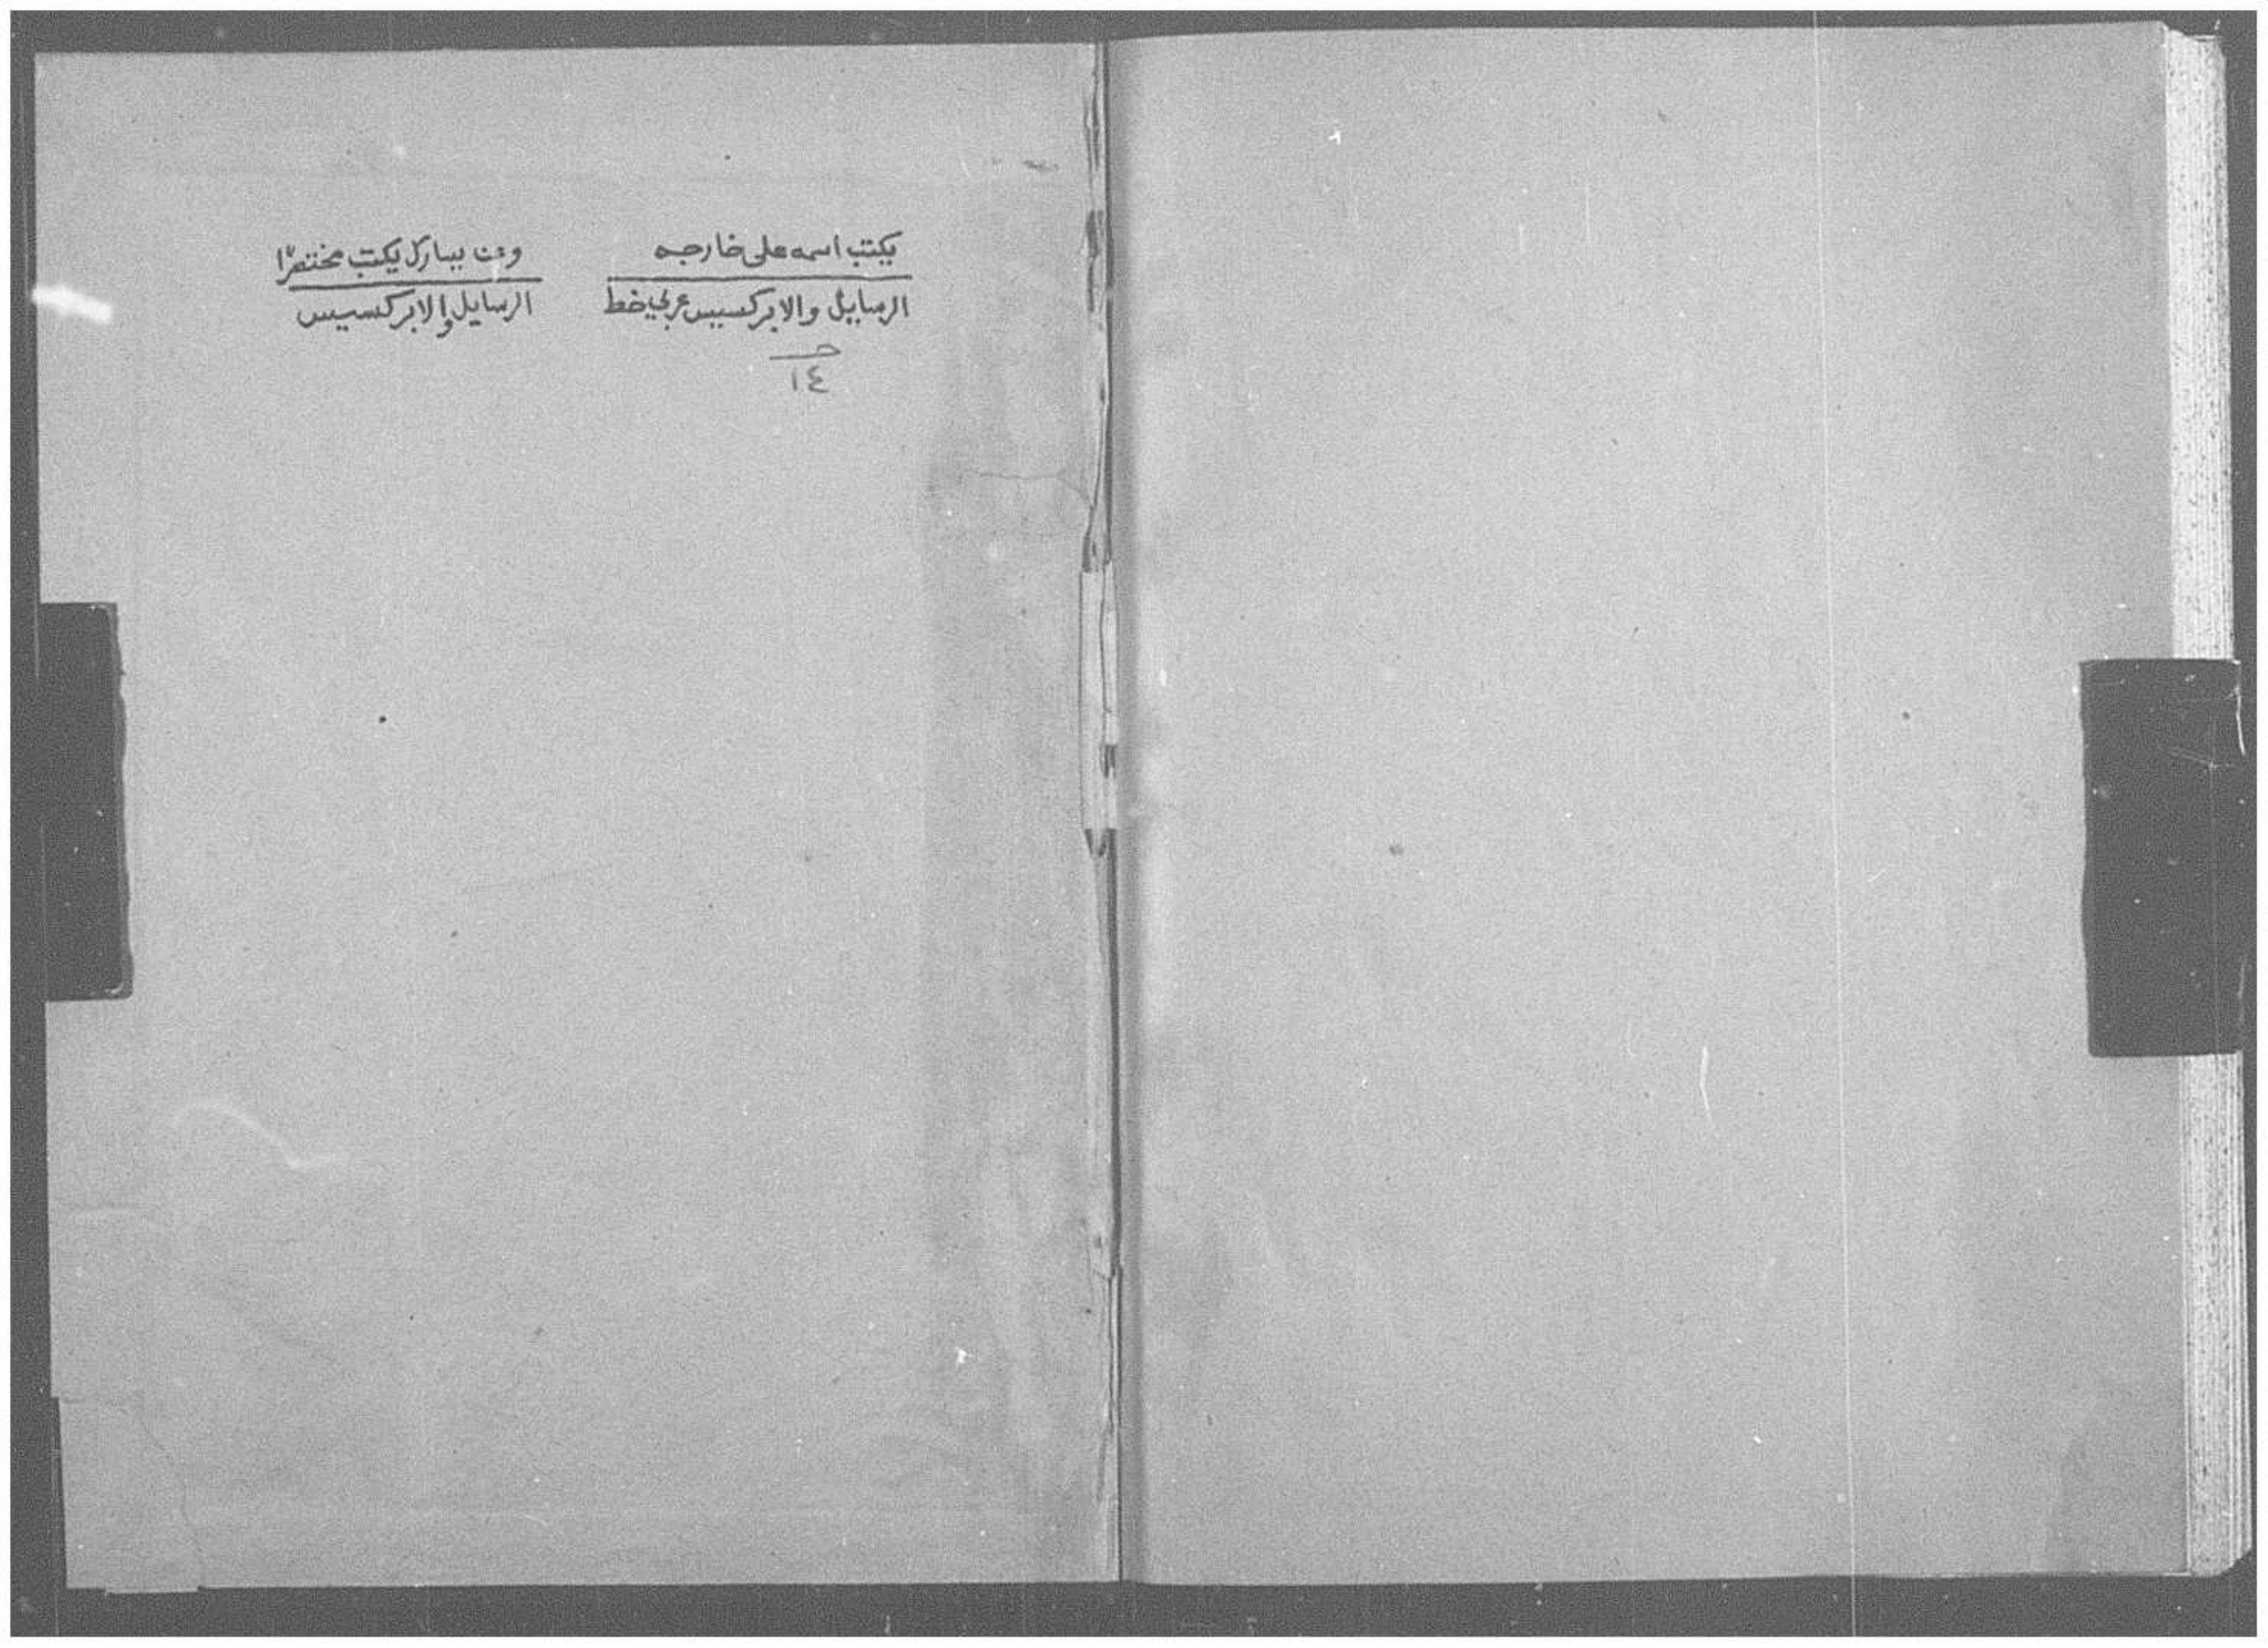 يكتب اسمه على خارجه
الرسايل والابركسيس عربي خط
حـ
١٤
يكتب مختصرًا
الرسايل والابركسيس